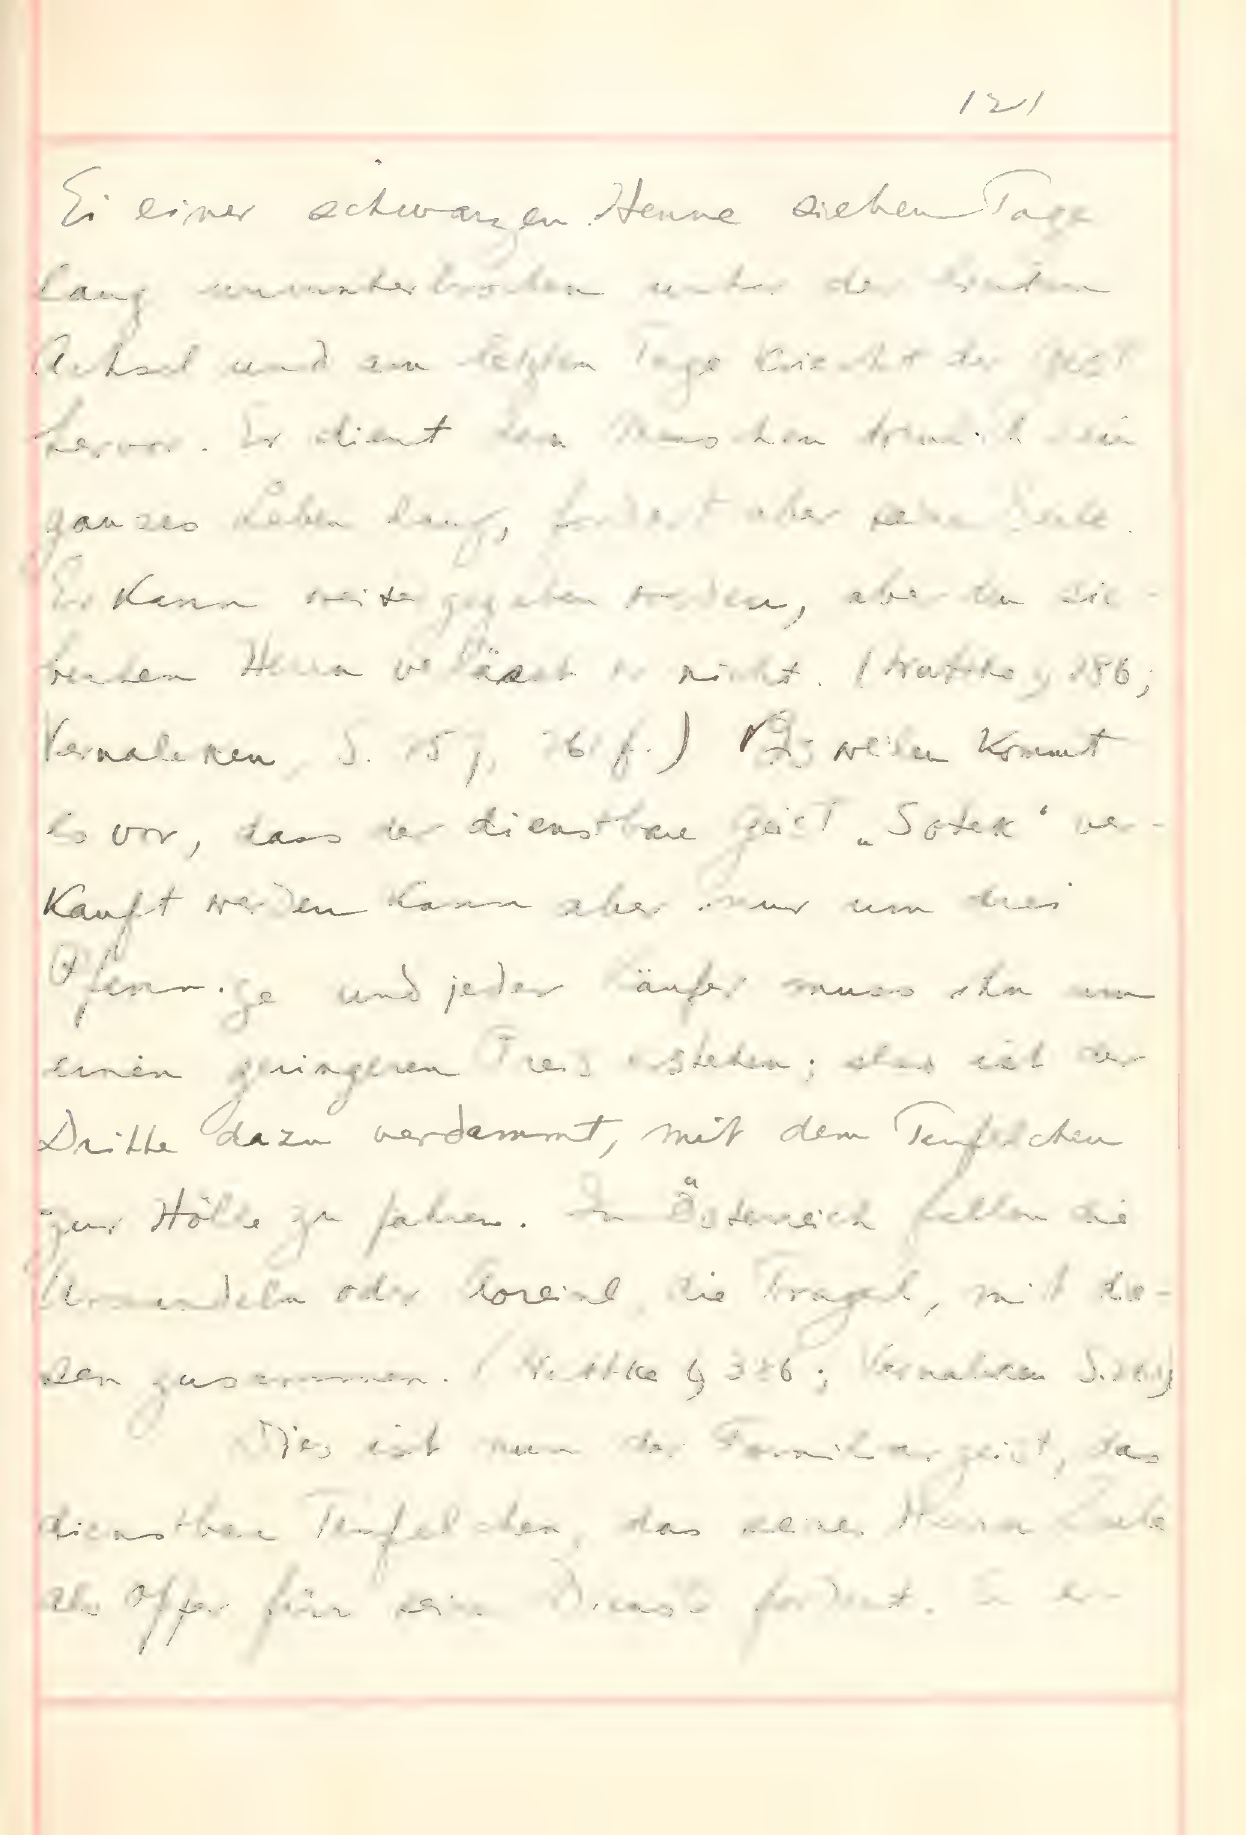 121
Ei einer schwarzen Henne sieben Tage
lang ununterbrochen unter der linken
Achsel und am letzten Tage kriecht der Geist
hervor. Er dient dem Menschen treulich sein
ganzes Leben lang, fordert aber seine Seele.
Er kann weitergegeben werden, aber den sie-
benten Herrn verlässt er nicht. (Wuttke § 386;
Vernaleken, S. 257, 261 f.) Bisweilen kommt
es vor, dass der dienstbare Geist „Sotek“ ver-
kauft werden kann aber nur um drei
Pfennige und jeder Käufer muss ihn um
einen geringeren Preis erstehen; also ist der
Dritte dazu verdammt, mit dem Teufelchen
zur Hölle zu fahren. In Österreich fallen die
oder die Tragerl, mit die-
sen zusammen. (Wuttke § 386; Vernaleken S. 261)
Dies ist nun der Familiargeist, das
dienstbare Teufelchen, das seines Herrn Seele
als Opfer für seine Dienste fordert. Er er-